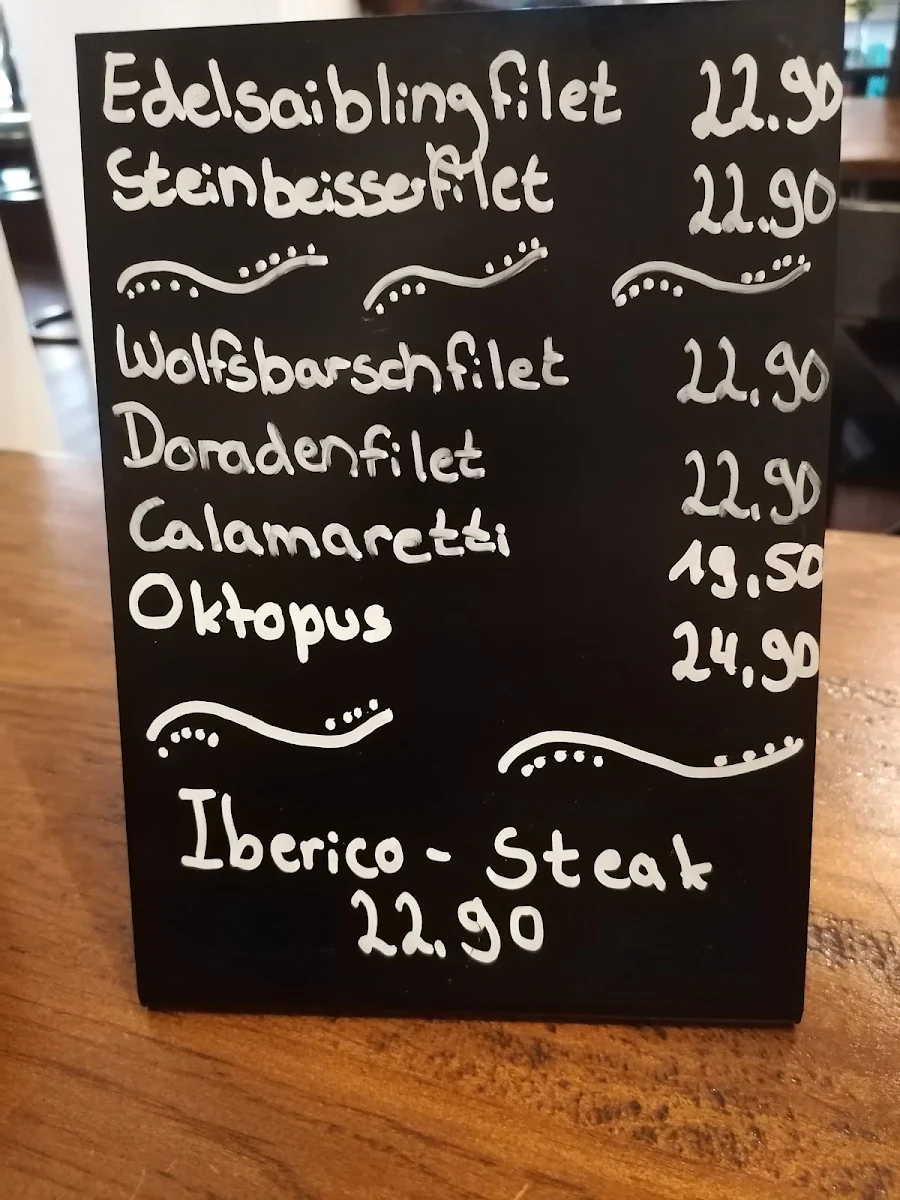 Edelsaiblingfilet 22.90
Steinbeisserfilet 22.90
Wolfsbarschfilet 22,90
Doradenfilet 22,90
Calamaretti 19,50
Oktopus 24,90
Iberico - Steak
22.90